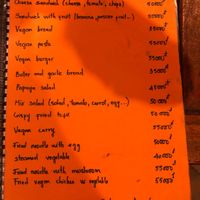 Cheese sandwich (cheese, tomato, chips) 50000
Sandwich with fruit (banana, passion fruit...) 50000
Vegan bread 35000đ
Vegan pasta 55000đ
Vegan burger 55000đ
Butter and garlic bread 35000đ
Papaya salad 45000đ
Mix salad (salad, tomato, carrot, egg...) 50.000đ
Crispy fried tofu 50.000đ
Vegan curry 55000đ
Fried noodle with egg 50000đ
steamed vegetable 40.000đ
Fried noodle with mushroom 55000đ
Fried vegan chicken w vegetable 55000đ